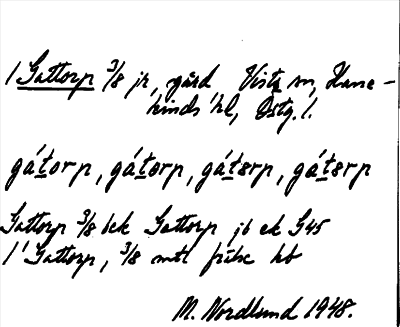 1 Gattorp 3/8 jr, gård, Vists sn, Hane-
kinds hd, Östg. l.
gátorp, gátorp, gátərp, gátərp
Gattorp 3/8 bek Gattorp jb ek G45
1 Gattorp, 3/8 mtl frälse hb
M. Nordlund 1948.